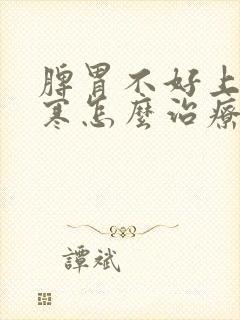 脾胃不好上
寒怎麼治療
譚斌